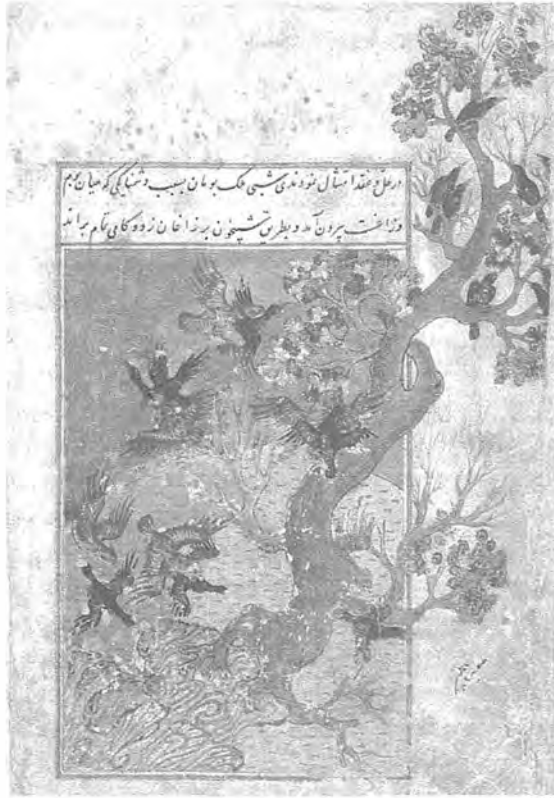 در حل و عقد امتثال نمودندی شبی ملک بومان بسبب دشمنایگی که میان بوم
و زاغست بیرون آمد و بطریق شبیخون بر زاغان زد و کامی تمام براند